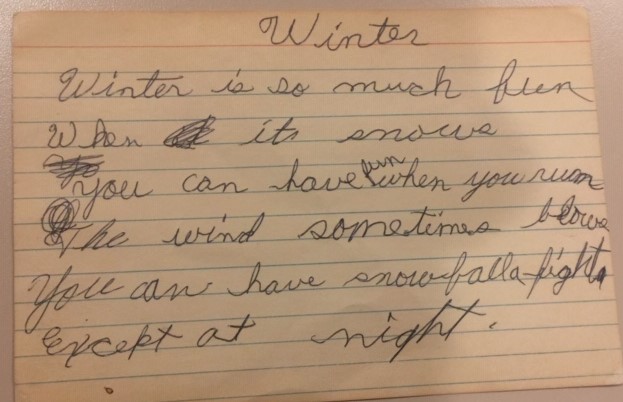 Winter
Winter is so much fun
When it snows
You can have fun when you run
The wind sometimes blows
You can have snowfalla fight
Except at night.